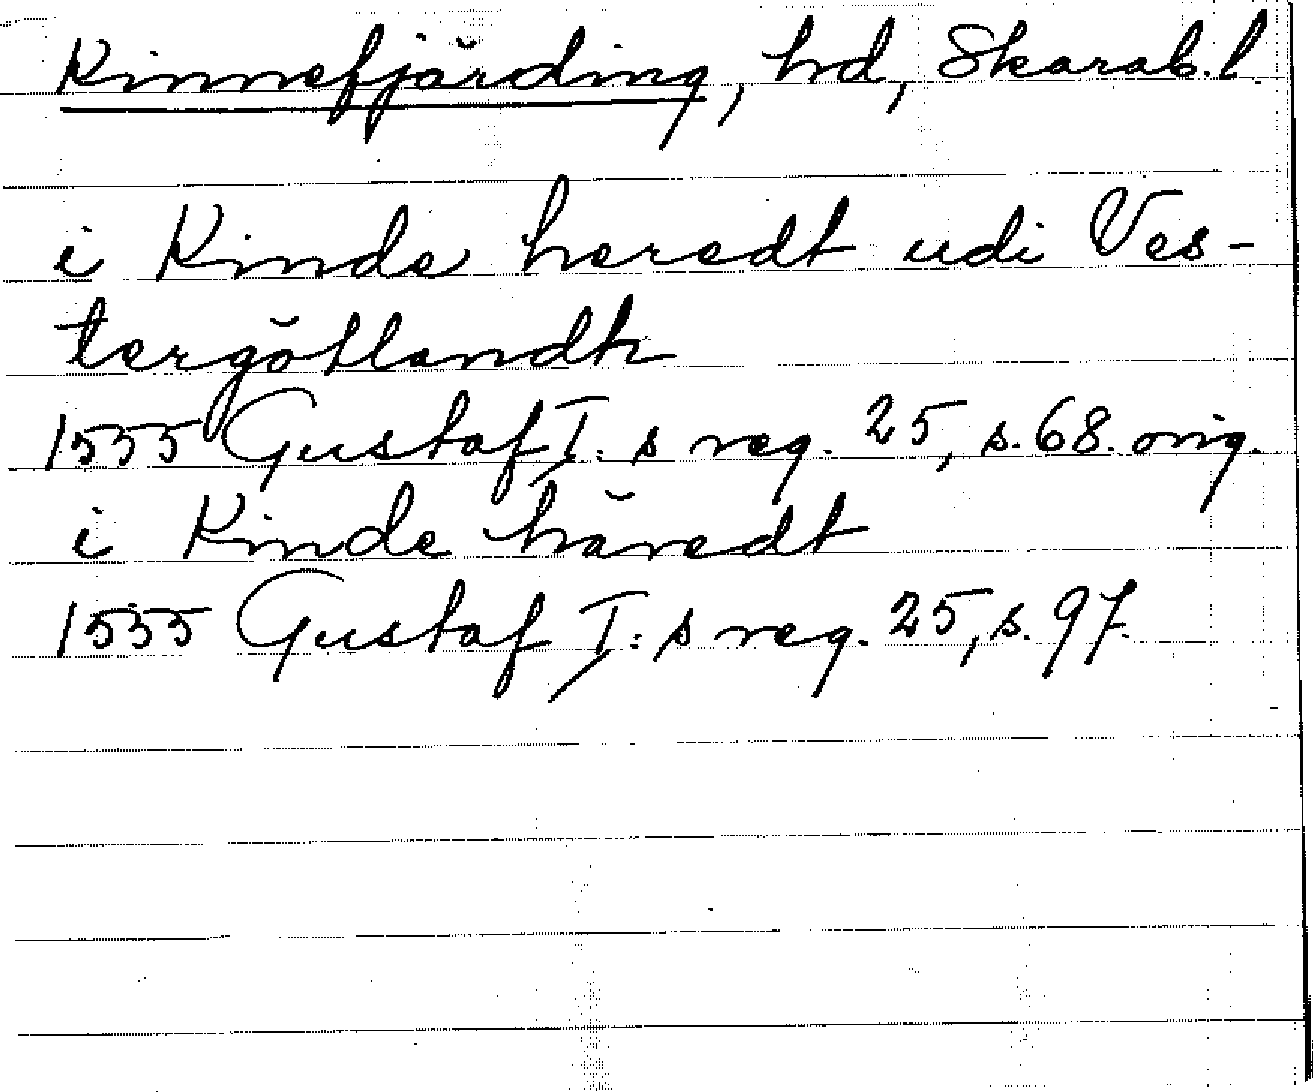 Kinnefjärding, hd, Skarab. l.
i Kinde heredt udi Ves-
tergötlandh
1555 Gustaf I:s reg. 25, s. 68. orig.
i Kinde häredt
1555 Gustaf I:s reg. 25, s. 97.